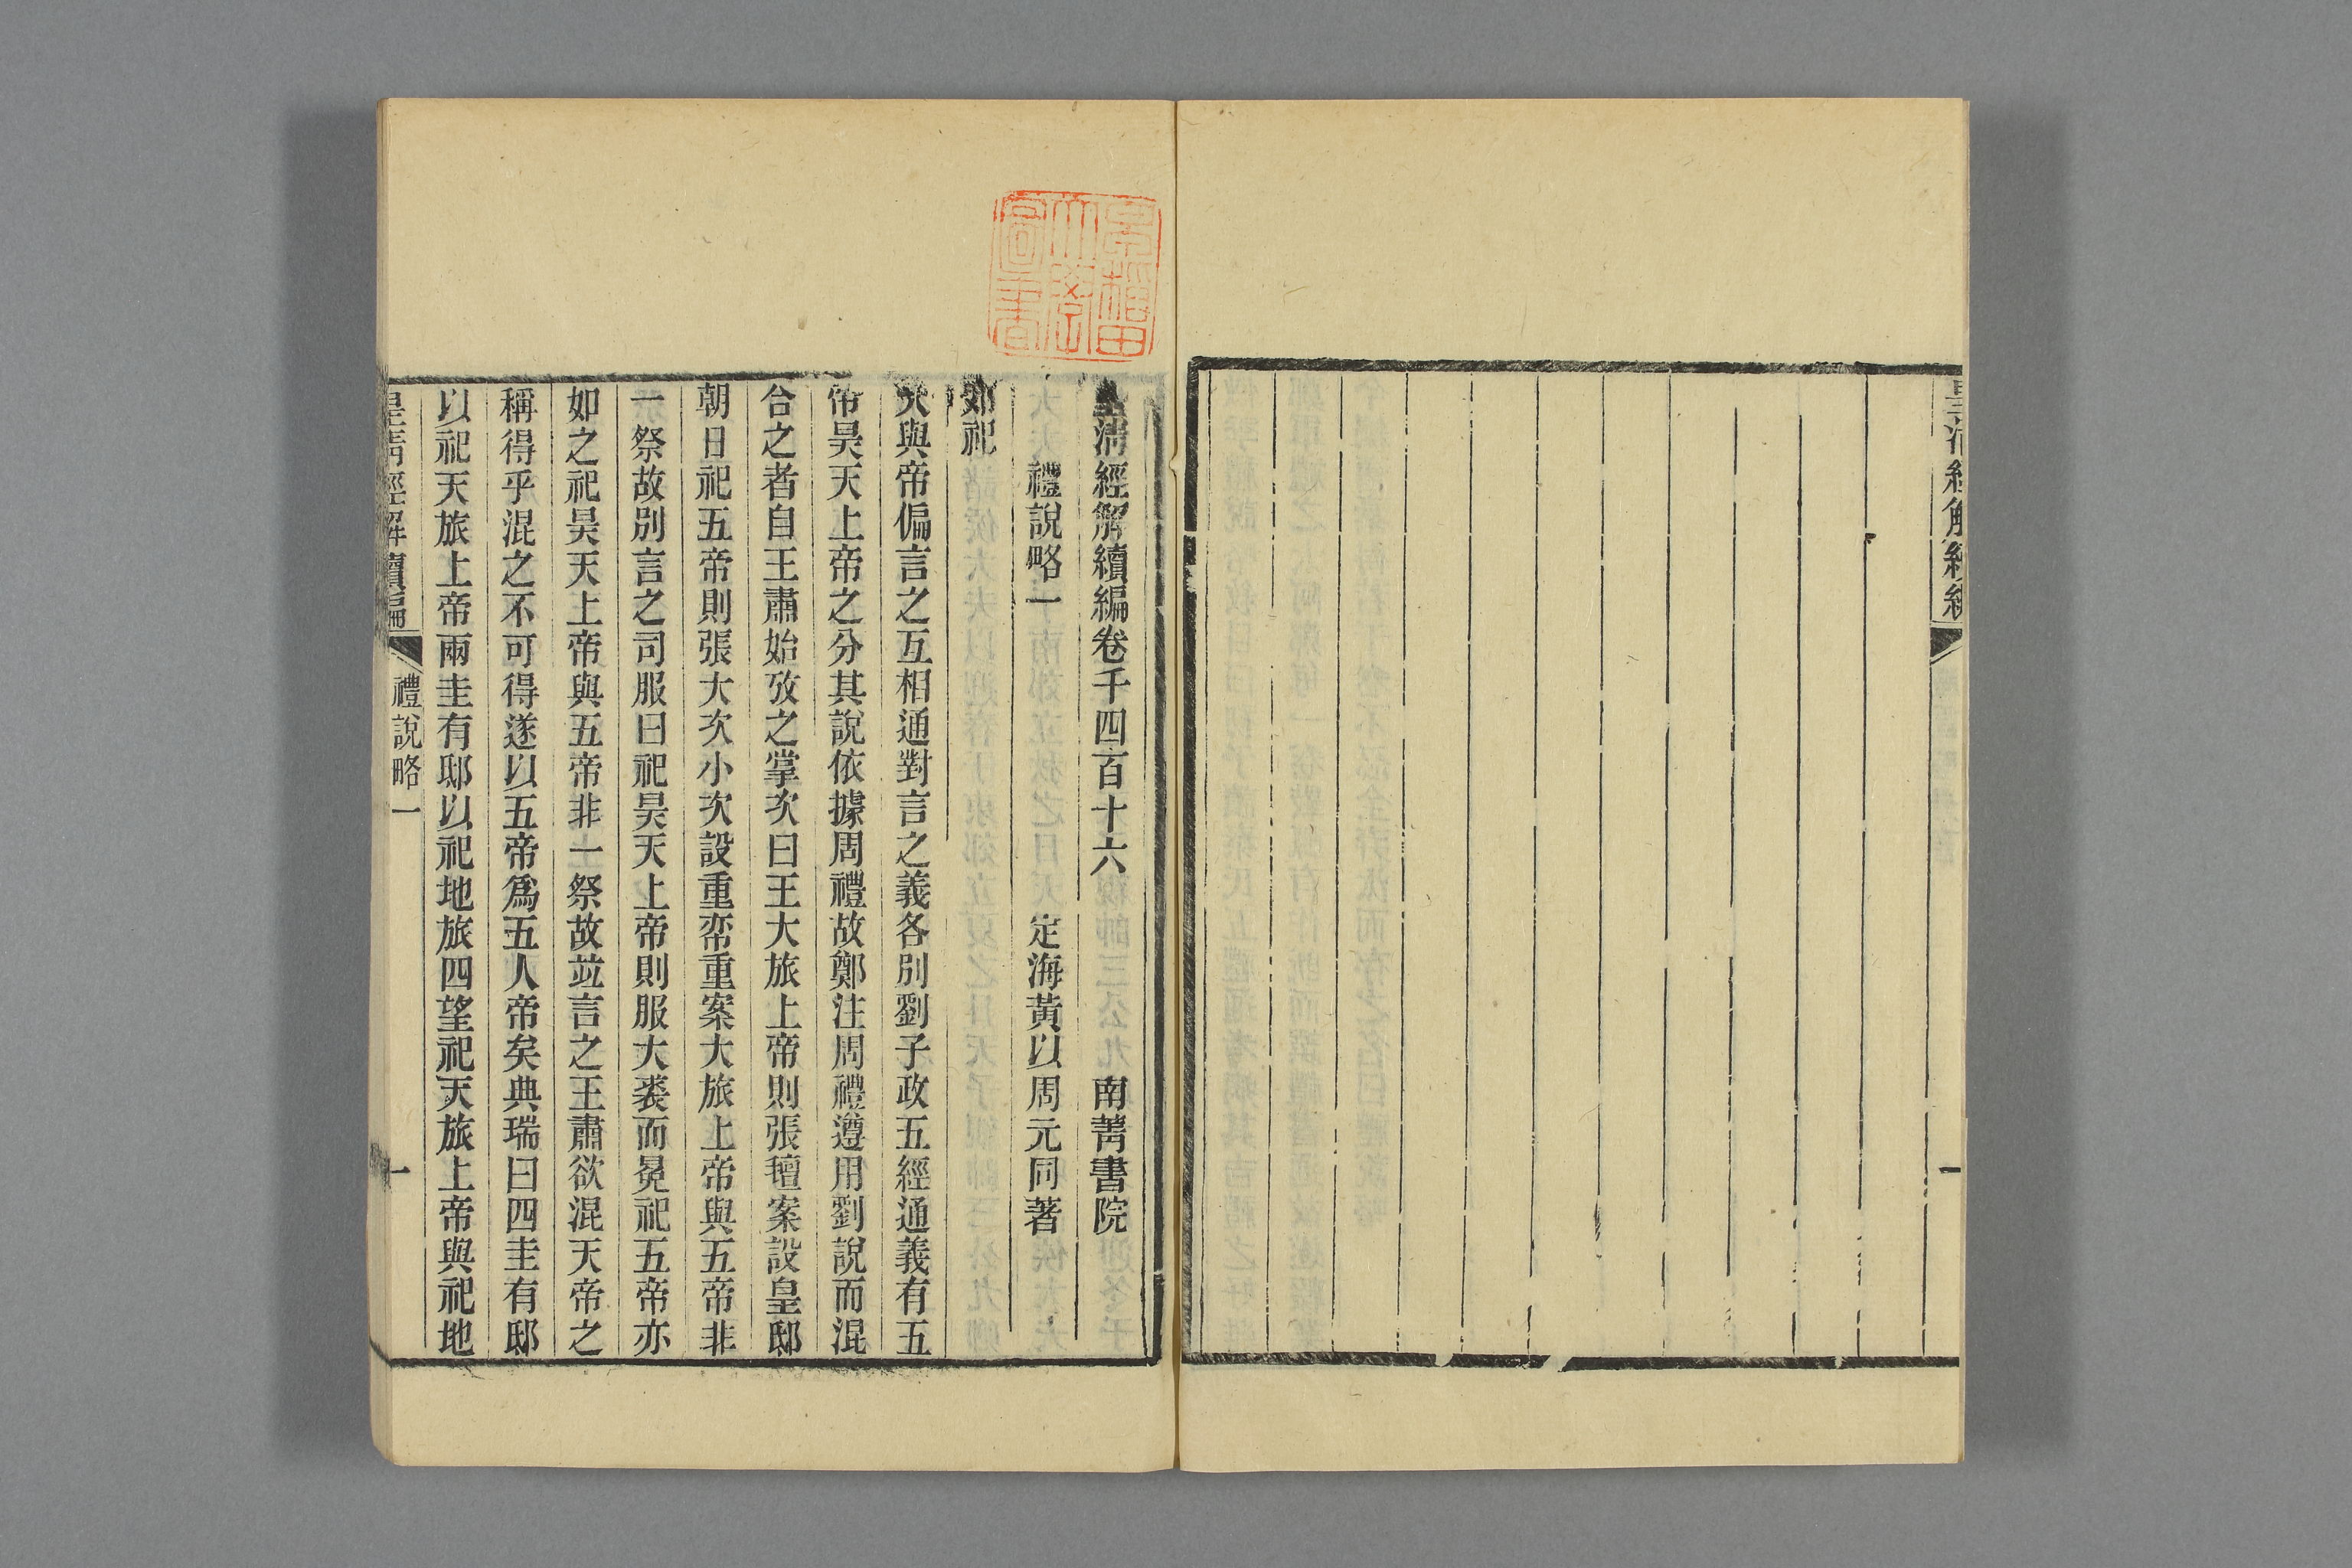 皇清經解續編
一
皇清經解續編卷千四百十六　南菁書院
禮說略一　定海黃以周元同著
郊祀
天與帝偏言之互相通對言之義各別劉子政五經通義有五
帝昊天上帝之分其說依據周禮故鄭注周禮遵用劉說而混
合之者自王肅始攷之掌次曰王大旅上帝則張氊案設皇邸
朝日祀五帝則張大次小次設重帟重案大旅上帝與五帝非
一祭故別言之司服曰祀昊天上帝則服大裘而冕祀五帝亦
如之祀昊天上帝與五帝非一祭故竝言之王肅欲混天帝之
稱得乎混之不可得遂以五帝爲五人帝矣典瑞曰四圭有邸
以祀天旅上帝兩圭有邸以祀地旅四望祀天旅上帝與祀地
皇清經解續編　禮說略一　一
早稻田大學圖書